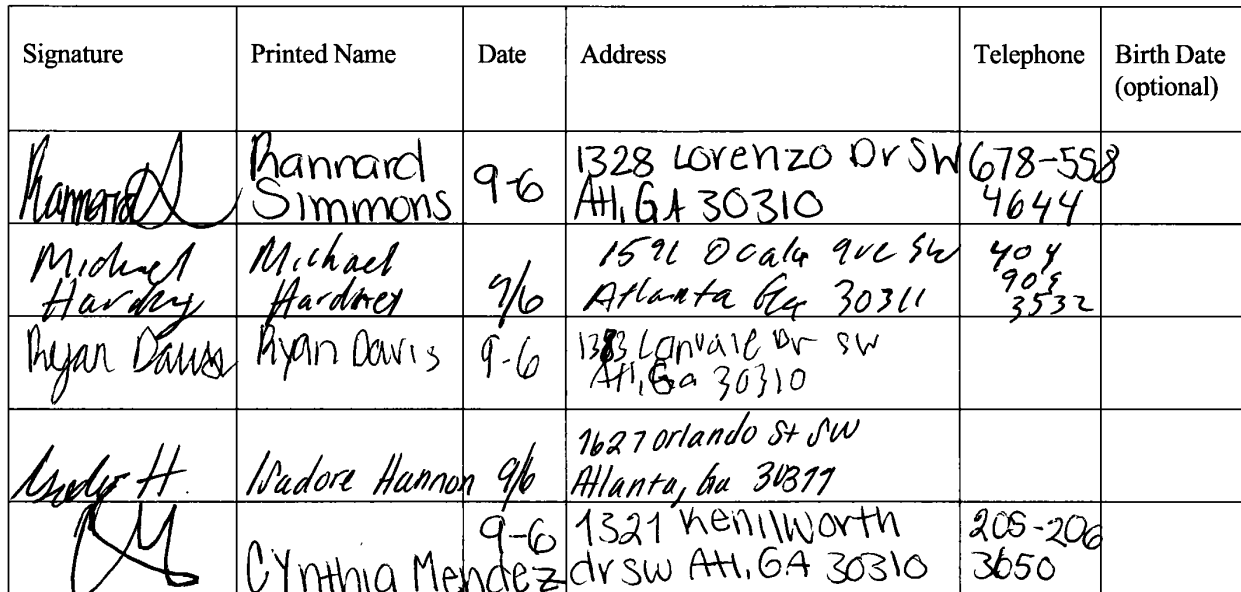 Signature Printed Name Date Address Telephone Birth Date
(optional)
Rannard
Simmons
9-6
1328 Lorenzo Dr SW
Atl, GA 30310
678-558
4644
Michael
Hardney
Michael
9/6
Ocala ave SW
Atlanta Ga 30311
404
3532
Ryan Davis
Ryan Davis
9-6
Lanvale Dr SW
Atl, Ga 30310
H.
Isadore Hannon
9/6
1627 Orlando St SW
Atlanta, Ga
Cynthia Mendez
9-6
1321 Kenilworth
dr sw Atl, GA 30310
205-206
3650